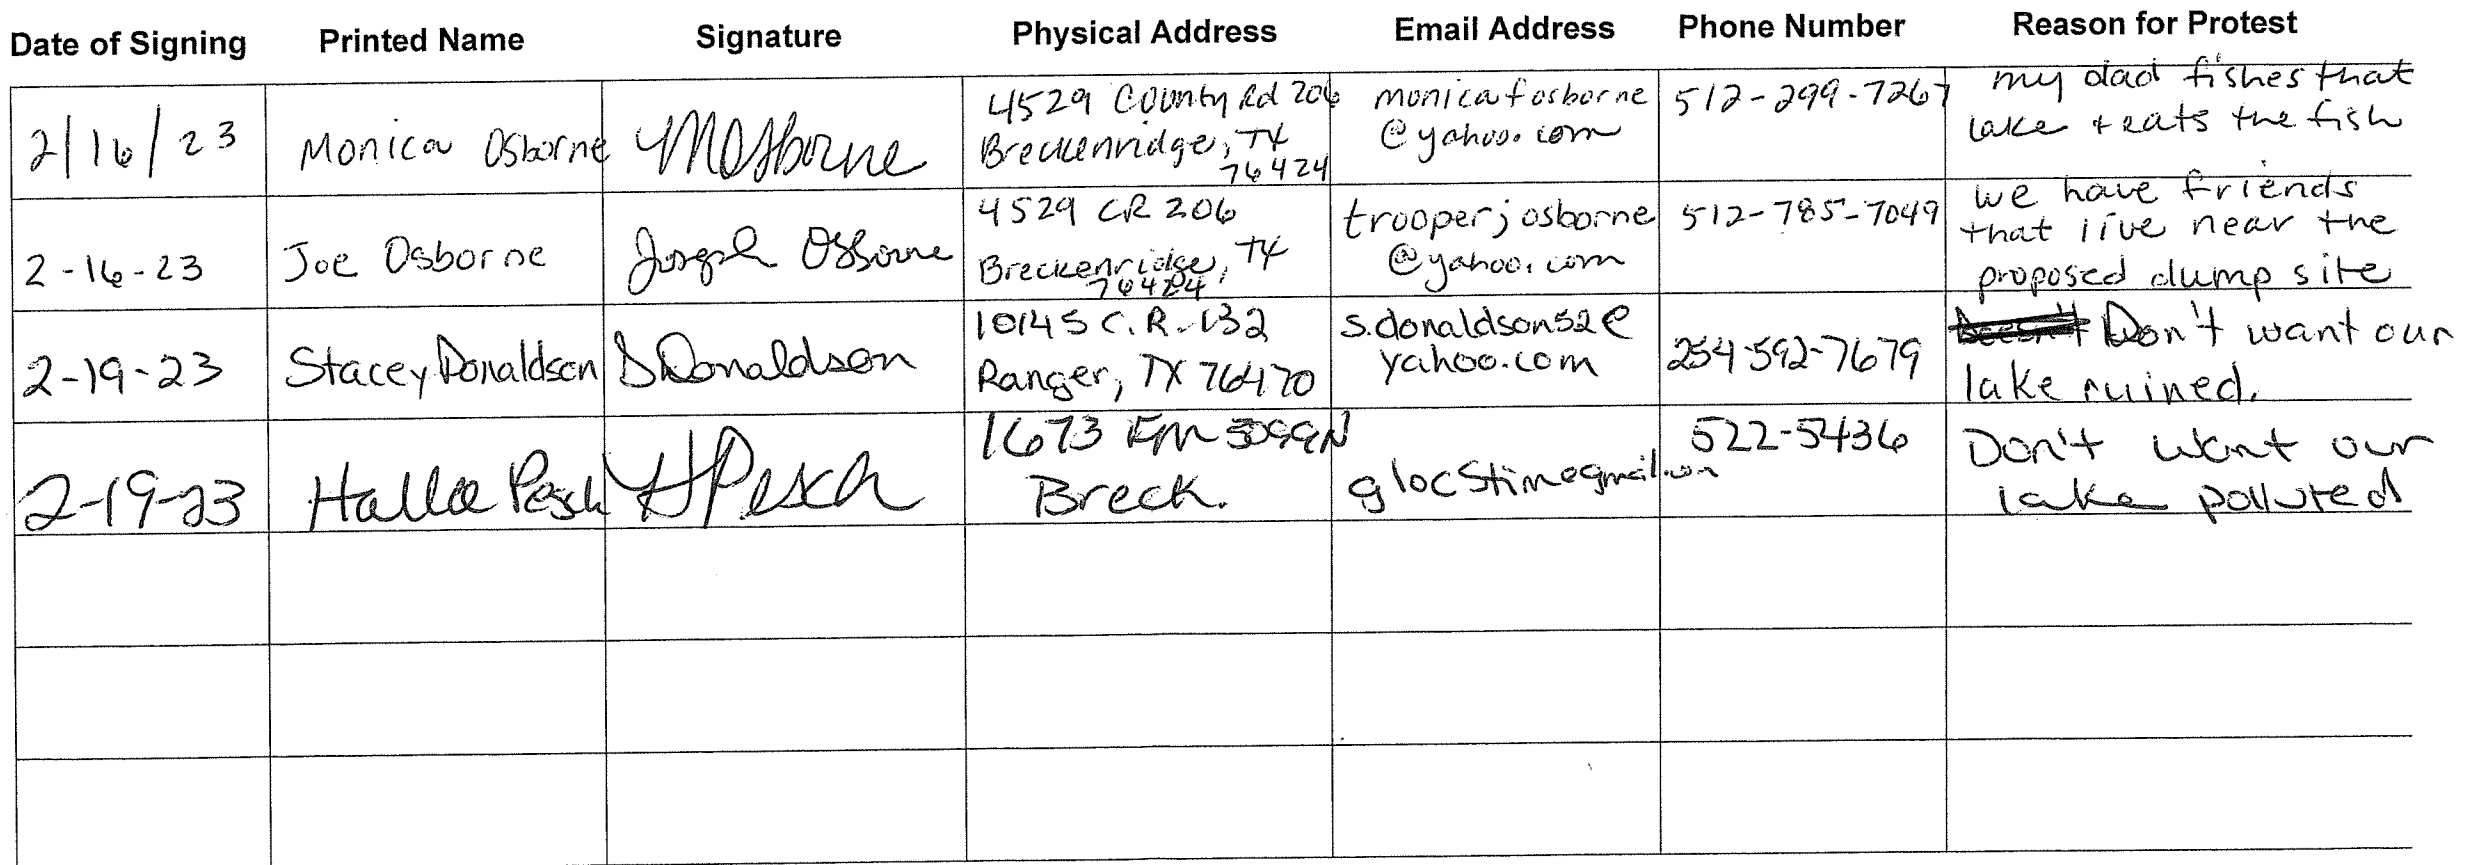 Date of Signing Printed Name Signature Physical Address Email Address Phone Number Reason for Protest
2/16/23
Monica Osborne
MOsborne
4529 County Rd 206
Breckenridge, TX
76424
monicafosborne
@yahoo.com
512-299-7267
my dad fishes that
lake + eats the fish
2-16-23
Joe Osborne
Joseph Osborne
4529 CR 206
Breckenridge, TX
76424
trooperjosborne
@yahoo.com
512-785-7049
we have friends
that live near the
proposed dump site
2-19-23
Stacey Donaldson
SDonaldson
10145 C.R. 132
Ranger, TX 76470
s.donaldson52@
yahoo.com
254-592-7679
Don't want our
lake ruined.
2-19-23
Hallie Pesch
HPesch
1673 FM 3099N
Breck.
522-5436
Don't want our
lake polluted